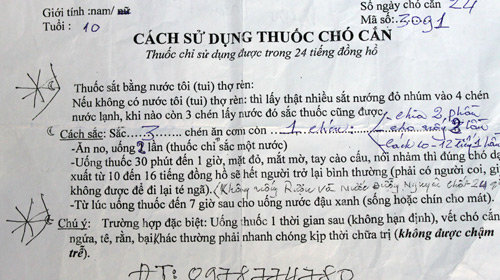 Giới tính :nam/ nữ
Số ngày chó cắn 24
Tuổi : 10
Mã số: 3091
CÁCH SỬ DỤNG THUỐC CHÓ CẮN
Thuốc chỉ sử dụng được trong 24 tiếng đồng hồ
Thuốc sắt bằng nước tôi (tui) thợ rèn:
Nếu không có nước tôi (tui) thợ rèn: thì lấy thật nhiều sắt nướng đỏ nhúm vào 4 chén
nước lạnh, khi nào còn 3 chén lấy nước đó sắc thuốc cũng được.
Cách sắc: Sắc....3....chén ăn cơm còn ....1 chén.. chia 2, phần
-Ăn no, uống 2 lần (thuốc chỉ sắc một nước) cho uống 2 lần
-Uống thuốc 30 phút đến 1 giờ, mặt đỏ, mắt mờ, tay cào cấu, nổi nhảm thì đúng chó dạ
cách 10-12 tiếng 1 lần
xuất từ 10 đến 16 tiếng đồng hồ sẽ hết người trở lại bình thường (phải có người coi, gi
không được để đi lại té ngã). (Không uống Rượu và nước Đường Nguyên chất 24
-Từ lúc uống thuốc đến 7 giờ sau cho uống nước đậu xanh (sống hoặc chín cho mát).
Chú ý: Trường hợp đặc biệt: Uống thuốc 1 thời gian sau (không hạn định), vết chó cắn
ngứa, tê, rần, bại/khác thường phải nhanh chóng kịp thời chữa trị (không được chậm
trễ).
ĐT: 0978774780